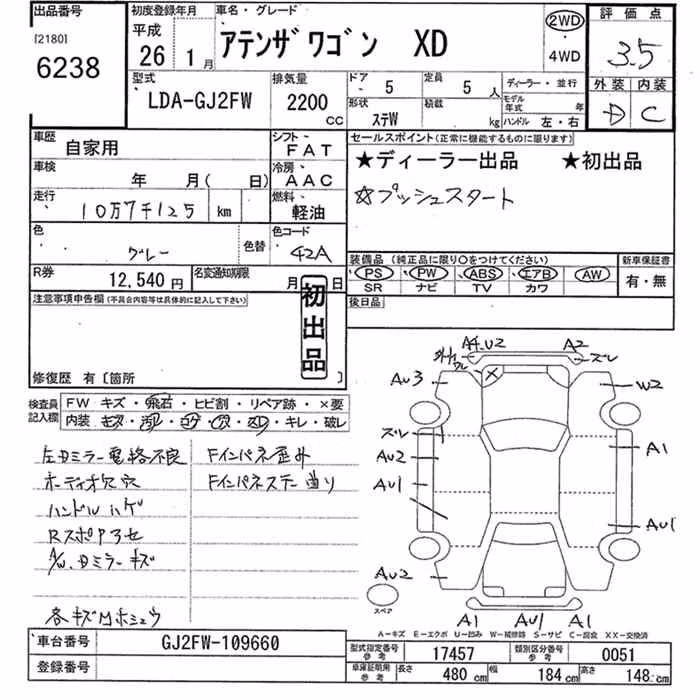 出品番号 初度登録年月 車名・グレード 2WD ・ 4WD 評価点
[2180] 6238 平成 26 1月 アテンザワゴン XD 3.5
型式 LDA-GJ2FW 排気量 2200 CC ドア・ 5 定員 5人 ディーラー・並行 外装 内装
形状 ステW 積載 kg モデル年式 年 ハンドル 左・右 D C
車歴 自家用 シフト・ FAT セールスポイント(正常に機能するものに限ります)
車検 年 月( 日) 冷房・ AAC ★ディーラー出品 ★初出品
走行 10万7千125 km 燃料・ 軽油 ☆プッシュスタート
色 グレー 色替 色コード 42A
装備品(純正品に限り○をつけてください) 新車保証書
R券 12,540円 名変通知期限 月 日 PS PW ABS エアB AW 有・無
SR ナビ TV カワ
注意事項申告欄(不具合内容等は具体的に記入して下さい) 初出品 後日品
修復歴 有〔箇所 〕
検査員記入欄 FW キズ・飛石・ヒビ割・リペア跡・×要
内装・キズ・汚レ・コゲ・穴・スレ・キレ・破レ
左ドミラー電格不良 Fインパネ歪み
オーディオ欠穴 Fインパネステー曲り
ハンドルハゲ
Rスポアセ
A/W、ドミラーキズ
各キズ凹ホシュウ
A4.U2 A2
ズレ
AU3 W2
ズレ A1
AU2
AU1 AU1
AU2
スペア
A1 AU1 A1
A－キズ E－エクボ U－凹み W－補修跡 S－サビ C－腐食 XX－交換済
車台番号 GJ2FW-109660 型式指定番号 参考 17457 類別区分番号 参考 0051
登録番号 車庫証明用 参考 長さ 480 cm 幅 184 cm 高さ 148 cm